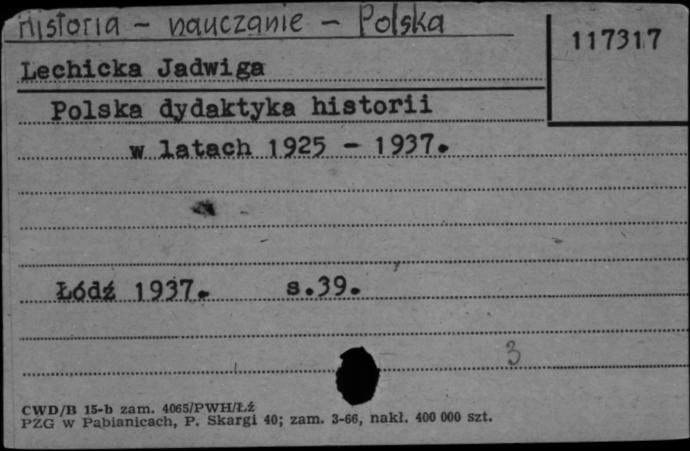 Historia - nauczanie - Polska
117317
Lechicka Jadwiga
Polska dydaktyka historii
w latach 1925 - 1937.
Łódź 1937. s.39.
3
CWD/B 15-b zam. 4065/PWH/Łź
PZG w Pabianicach, P. Skargi 40; zam. 3-66, nakł. 400 000 szt.